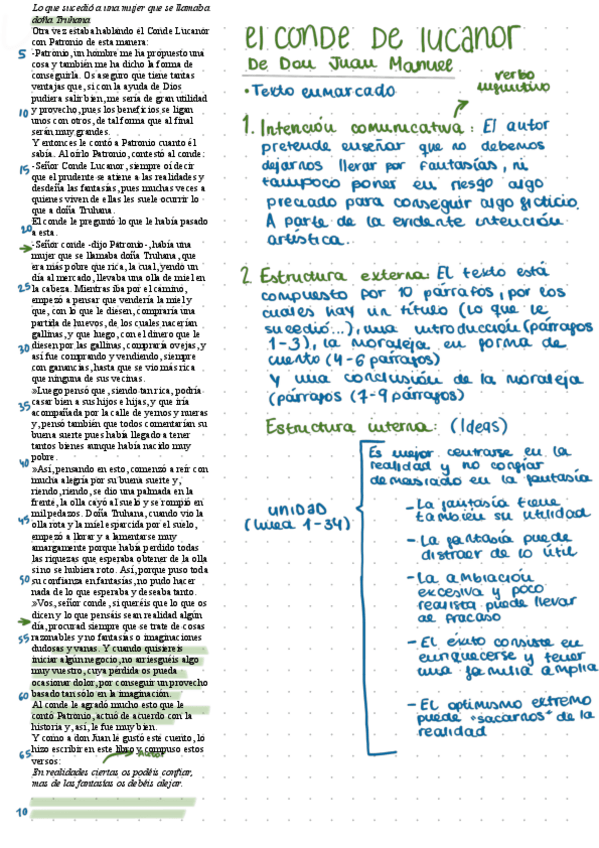 Lo que sucedió a una mujer que se llamaba
doña Truhana
Otra vez estaba hablando el Conde Lucanor
con Patronio de esta manera:
5 -Patronio, un hombre me ha propuesto una
cosa y también me ha dicho la forma de
conseguirla. Os aseguro que tiene tantas
ventajas que, si con la ayuda de Dios
pudiera salir bien, me sería de gran utilidad
10 y provecho, pues los beneficios se ligan
unos con otros, de tal forma que al final
serán muy grandes.
Y entonces le contó a Patronio cuanto él
sabía. Al oírlo Patronio, contestó al conde:
15 -Señor Conde Lucanor, siempre oí decir
que el prudente se atiene a las realidades y
desdeña las fantasías, pues muchas veces a
quienes viven de ellas les suele ocurrir lo
que a doña Truhana.
El conde le preguntó lo que le había pasado
20 a esta.
-Señor conde -dijo Patronio-, había una
mujer que se llamaba doña Truhana, que
era más pobre que rica, la cual, yendo un
día al mercado, llevaba una olla de miel en
25 la cabeza. Mientras iba por el camino,
empezó a pensar que vendería la miel y
que, con lo que le diesen, compraría una
partida de huevos, de los cuales nacerían
gallinas, y que luego, con el dinero que le
30 diesen por las gallinas, compraría ovejas, y
así fue comprando y vendiendo, siempre
con ganancias, hasta que se vio más rica
que ninguna de sus vecinas.
»Luego pensó que, siendo tan rica, podría
35 casar bien a sus hijos e hijas, y que iría
acompañada por la calle de yernos y nueras
y, pensó también que todos comentarían su
buena suerte pues había llegado a tener
tantos bienes aunque había nacido muy
40 pobre.
»Así, pensando en esto, comenzó a reír con
mucha alegría por su buena suerte y,
riendo, riendo, se dio una palmada en la
frente, la olla cayó al suelo y se rompió en
45 mil pedazos. Doña Truhana, cuando vio la
olla rota y la miel esparcida por el suelo,
empezó a llorar y a lamentarse muy
amargamente porque había perdido todas
las riquezas que esperaba obtener de la olla
si no se hubiera roto. Así, porque puso toda
50 su confianza en fantasías, no pudo hacer
nada de lo que esperaba y deseaba tanto.
»Vos, señor conde, si queréis que lo que os
dicen y lo que pensáis sean realidad algún
día, procurad siempre que se trate de cosas
55 razonables y no fantasías o imaginaciones
dudosas y vanas. Y cuando quisiereis
iniciar algún negocio, no arriesguéis algo
muy vuestro, cuya pérdida os pueda
ocasionar dolor, por conseguir un provecho
60 basado tan sólo en la imaginación.
Al conde le agradó mucho esto que le
contó Patronio, actuó de acuerdo con la
historia y, así, le fue muy bien.
Y como a don Juan le gustó este cuento, lo
65 hizo escribir en este libro y compuso estos
versos: Autor
En realidades ciertas os podéis confiar,
mas de las fantasías os debéis alejar.
10
el CONDE DE lUCANOR
De Don Juan Manuel
• Texto enmarcado
verbo
infinitivo
1. Intención comunicativa: El autor
pretende enseñar que no debemos
dejarnos llevar por fantasías, ni
tampoco poner en riesgo algo
preciado para conseguir algo ficticio.
A parte de la evidente intención
artística.
2 Estructura externa: El texto está
compuesto por 10 párrafos, por los
cuales hay un título (lo que le
sucedió...), una introducción (párrafos
1-3), la moraleja en forma de
cuento (4-6 párrafos)
Y una conclusión de la moraleja
(párrafos (7-9 párrafos)
Estructura interna: (Ideas)
UNIDAD
(línea 1-34)
Es mejor centrarse en la
realidad y no confiar
demasiado en la fantasía
- La fantasía tiene
también su utilidad
- La fantasía puede
distraer de lo útil
- La ambiación
excesiva y poco
realista puede llevar
al fracaso
- El éxito consiste en
enriquecerse y tener
una familia amplia
- El optimismo extremo
puede "sacarnos" de la
realidad